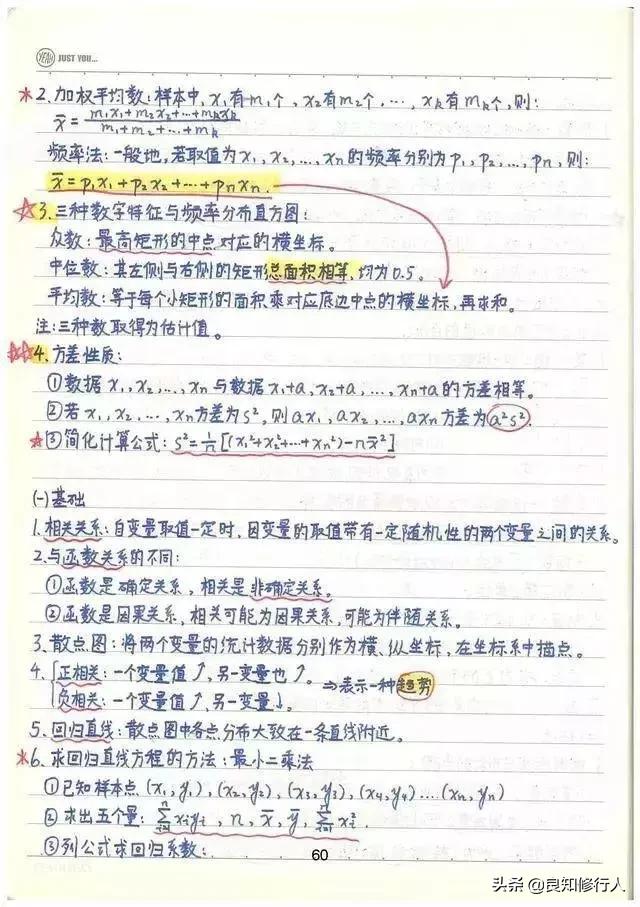 YEAH JUST YOU...
*2. 加权平均数：样本中，x₁有m₁个，x₂有m₂个，…，xₖ有mₖ个，则：
x̄ = (m₁x₁+m₂x₂+…+mₖxₖ)/(m₁+m₂+…+mₖ)
频率法：一般地，若取值为x₁，x₂，…，xn的频率分别为p₁，p₂，…，pn，则：
x̄=p₁x₁+p₂x₂+…+pnxn.
☆3. 三种数字特征与频率分布直方图：
众数：最高矩形的中点对应的横坐标。
中位数：其左侧与右侧的矩形总面积相等，均为0.5。
平均数：等于每个小矩形的面积乘对应底边中点的横坐标，再求和。
注：三种数取得为估计值。
☆☆4. 方差性质：
①数据x₁，x₂，…，xn与数据x₁+a，x₂+a，…，xn+a的方差相等。
②若x₁，x₂，…，xn方差为s²，则ax₁，ax₂，…，axn方差为a²s².
☆③简化计算公式：s²=1/n[(x₁²+x₂²+…+xn²)-nx̄²]
(一)基础
1. 相关关系：自变量取值一定时，因变量的取值带有一定随机性的两个变量之间的关系。
2. 与函数关系的不同：
①函数是确定关系，相关是非确定关系。
②函数是因果关系，相关可能为因果关系，可能为伴随关系。
3. 散点图：将两个变量的统计数据分别作为横、纵坐标，在坐标系中描点。
4. {正相关：一个变量值↗，另一变量也↗。 ⇒表示一种趋势
负相关：一个变量值↗，另一变量↓。
5. 回归直线：散点图中各点分布大致在一条直线附近。
*6. 求回归直线方程的方法：最小二乘法
①已知样本点(x₁,y₁)，(x₂,y₂)，(x₃,y₃)，(x₄,y₄)…(xn,yn)
②求出五个量：∑ⁿᵢ₌₁xᵢyᵢ，n，x̄，ȳ，∑ⁿᵢ₌₁xᵢ².
③列公式求回归系数：
60
头条 @良知修行人